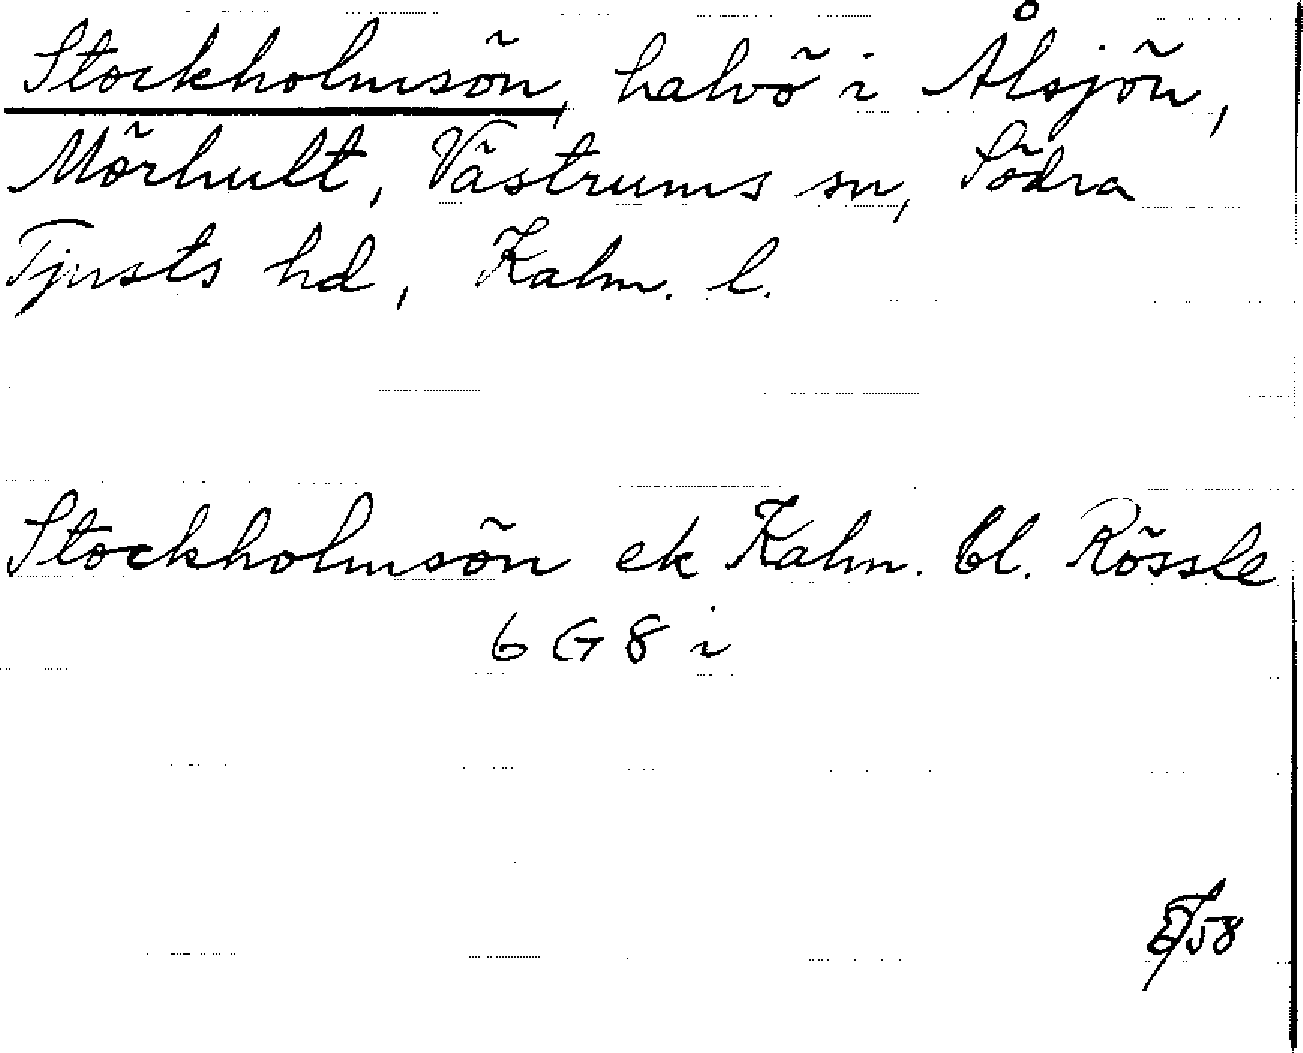 Stockholmsön, halvö i Ålsjön,
Mörhult, Västrums sn, Södra
Tjusts hd, Kalm. l.
Stockholmsön ek Kalm. bl. Rössle
6 G 8 i
58